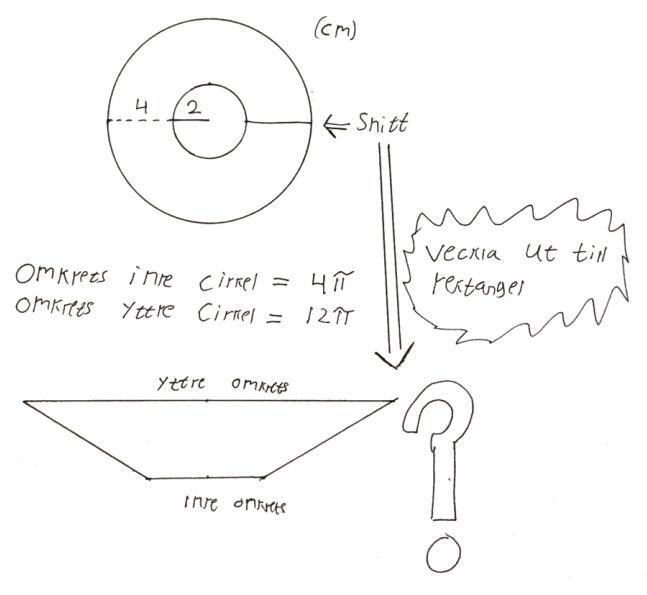 (cm)
4 2
Snitt
Veckla ut till
rektangel
Omkrets inre cirkel = 4π
Omkrets yttre cirkel = 12π
yttre omkrets
inre omkrets
?